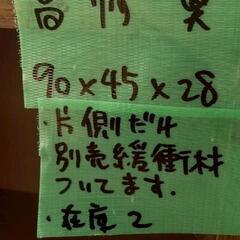 90×45×28
・片側だけ
別売緩衝材
ついてます.
・在庫 2